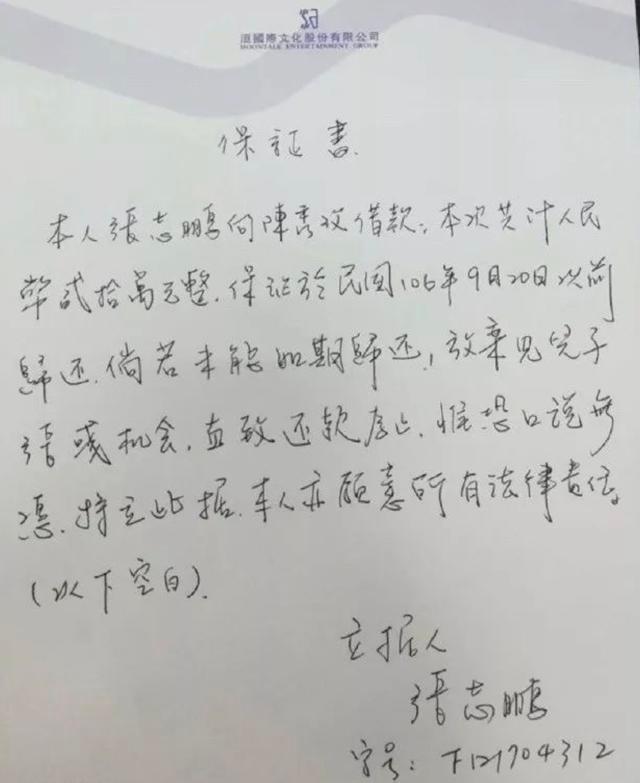 洹國際文化股份有限公司
MOONTALE ENTERTAINMENT GROUP
保証書
本人張志鵬向陳秀玫借款,本次共計人民
幣貳拾萬元整.保証於民国106年9月20日以前
歸还.倘若未能如期歸还,放棄見兒子
張彧机会,直致还款為止.惟恐口說無
憑.特立此据.本人亦願意所有法律責任。
(以下空白).
立据人
張志鵬
字号:F121704312